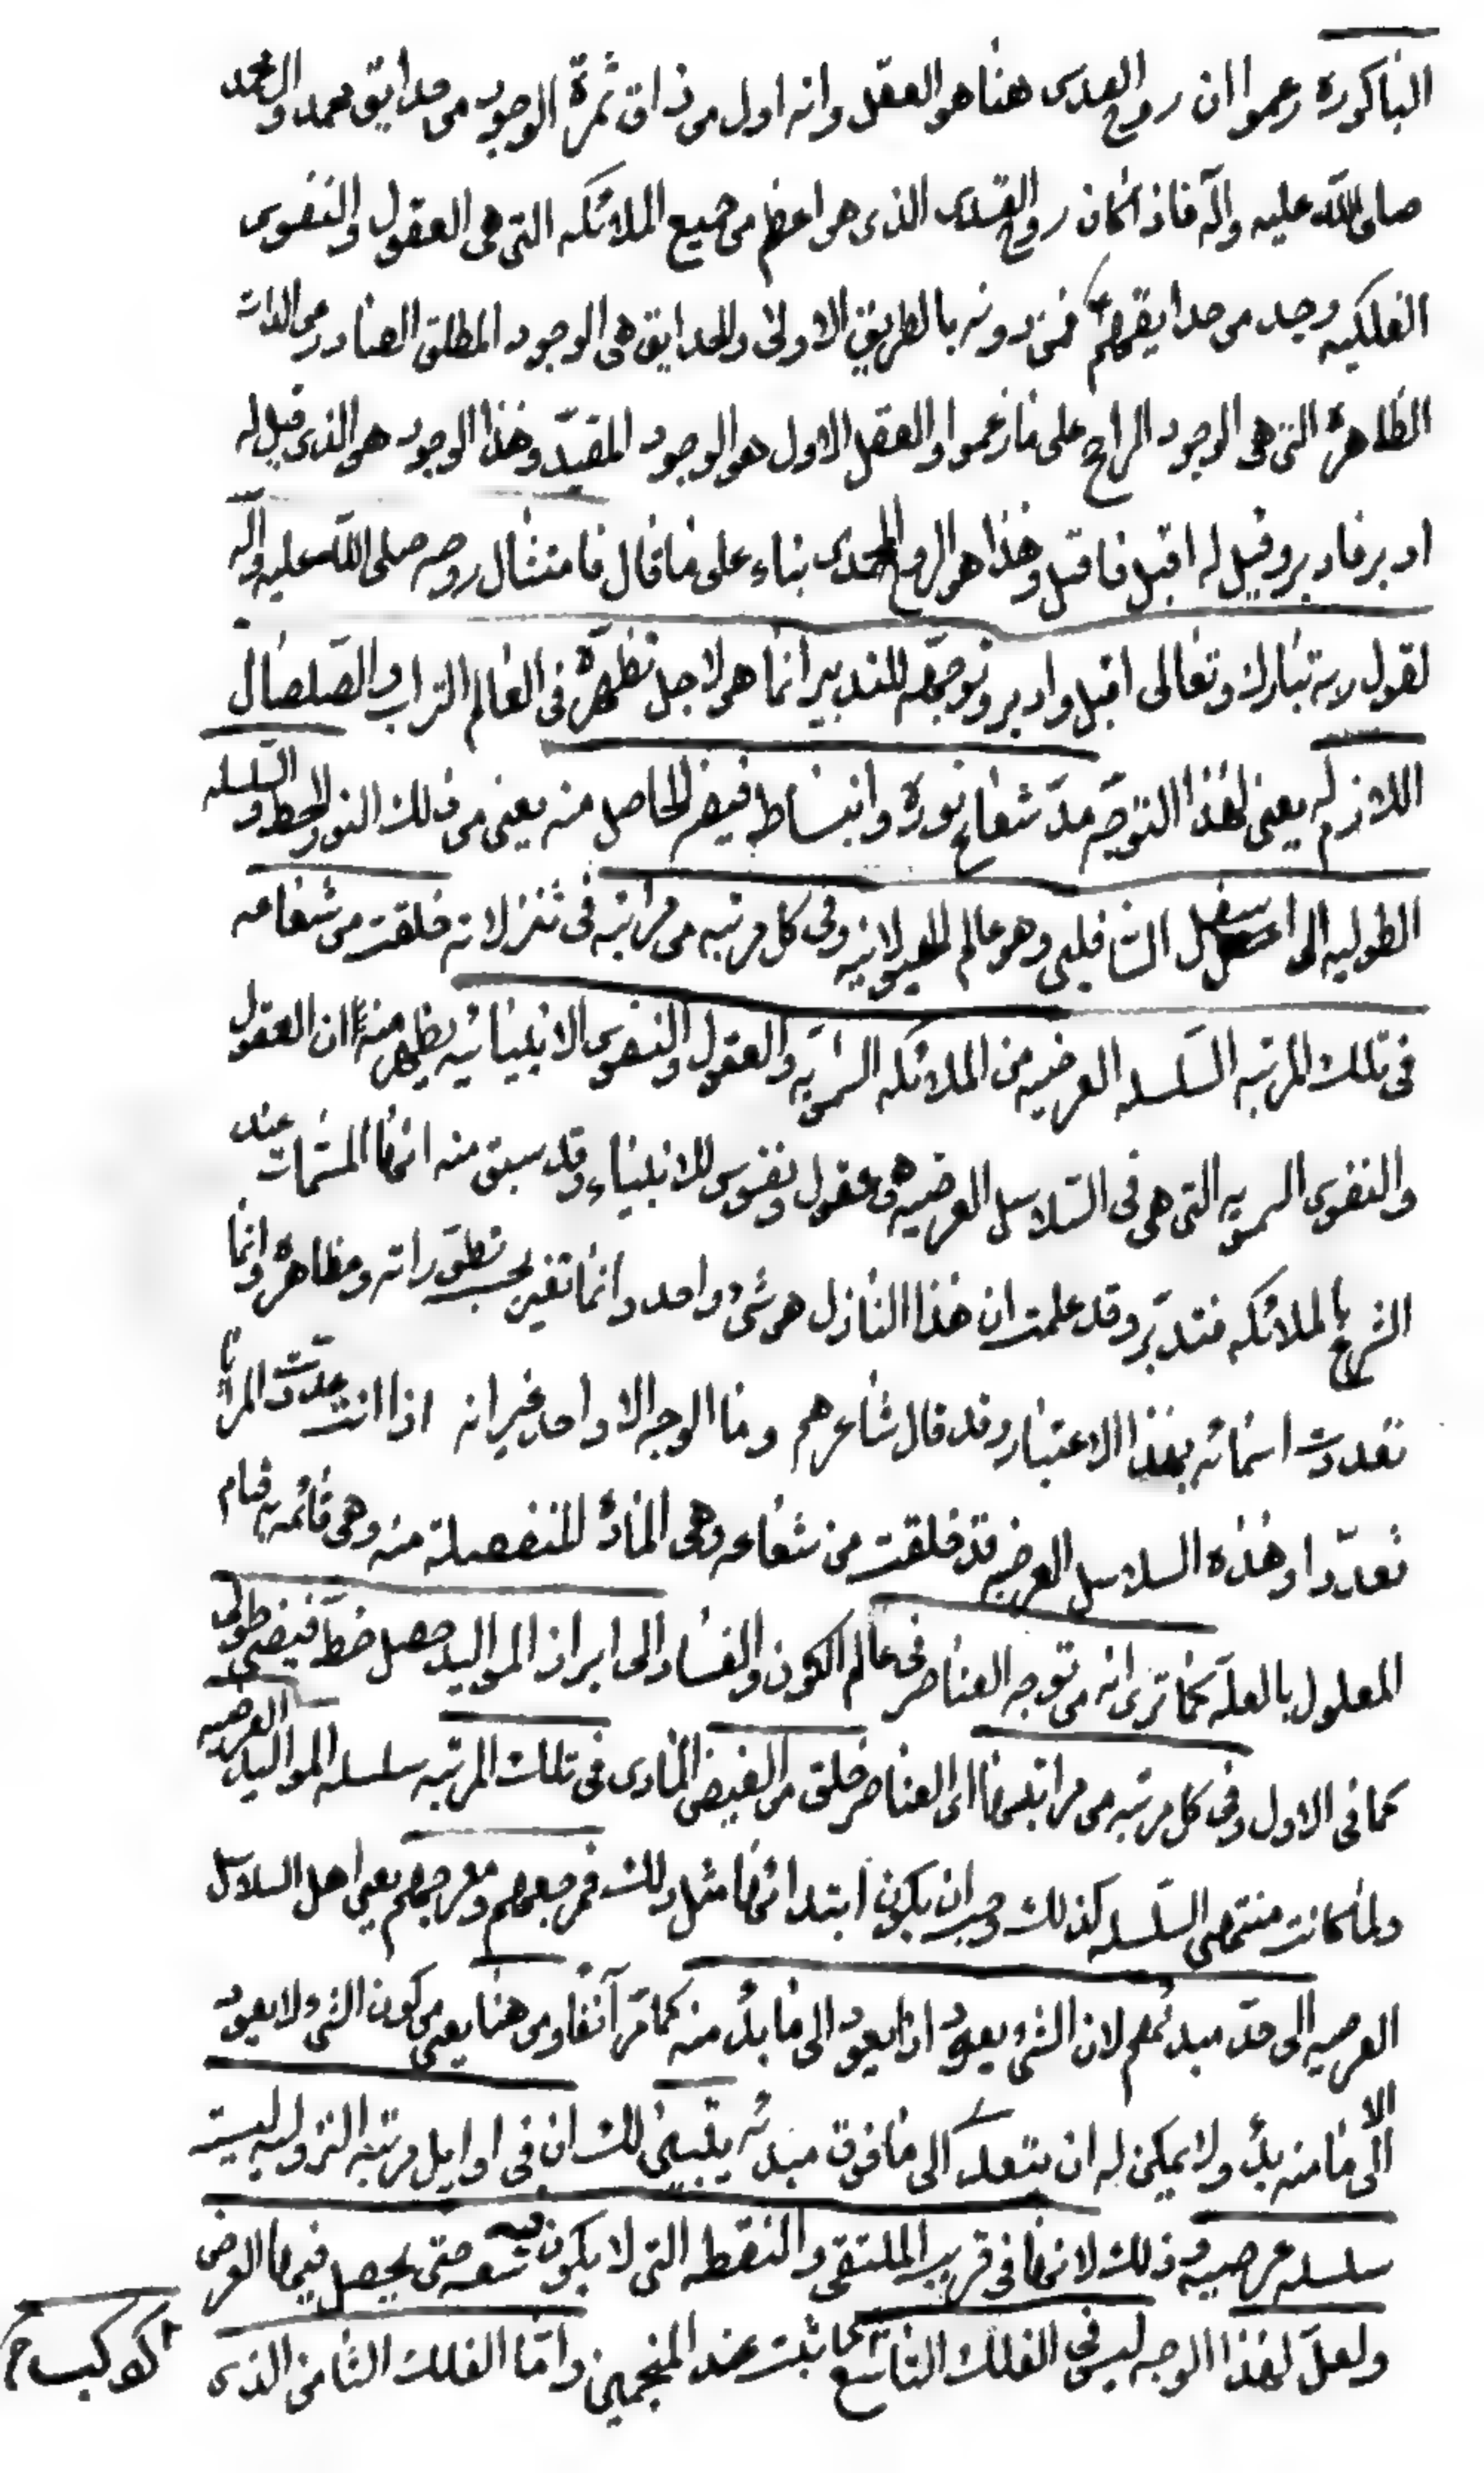 الباكورة زعموا ان روح القدس هنا هو العقل وانه اول من ذاق ثمرة الوجود من حدايق محمد وال محمد
صلى الله عليه وآله فاذا كان روح القدس الذى هو اعظم من جميع الملائكه التى هى العقول والنفوس
الفلكيه وجد من حدايقهم ع فمن دونه بالطريق الاولى والحدايق هى الوجود المطلق الصادر من الذات
الظاهرة التى هى الوجود الراجح على ما زعموا والعقل الاول هو الوجود المقيد وهذا الوجود هو الذى قيل له
ادبر فادبر وقيل له اقبل فاقبل وهذا هو الروح المحمدى بناء على ما قال فامتثال روحه صلى الله عليه وآله
لقول ربه تبارك وتعالى اقبل وادبر وتوجهه للتدبير انما هو لاجل تطهره فى العالم التراب والصلصال
اللازم له يعنى لهذا التوجه مد شعاع نوره وانبساط فيضه الحاصل منه يعنى من ذلك النور الخط والسلسله
الطوليه الى اسفل السافلين وهو عالم الهيولانيه وفى كل مرتبه من مراتبه فى تنزلاته خلقت من شعاعه
فى تلك المرتبه السلسله العرضيه من الملائكه السمويه والعقول والنفوس الانبيائيه يظهر منه ان العقول
والنفوس السمويه التى هى فى السلاسل العرضيه هى عقول ونفوس للانبياء وقد سبق منه انها المسمات عند
الشرع بالملائكه فتدبر وقد علمت ان هذا النازل هو شىء واحد وانما تغير بحسب تطوراته ومظاهره وانما
تعددت اسمائه بهذا الاعتبار وقد قال شاعرهم وما الوجه الا واحد غير انه اذا انت عددت المرايا
تعددا وهذه السلاسل العرضيه قد خلقت من شعاعه وهى المادة المنفصلة منه وهى قائمه به قيام
المعلول بالعله كما ترى انه من توجه العناصر فى عالم الكون والفساد الى ابراز المواليد حصل خط فيض طولى
كما فى الاول وفى كل مرتبه من مراتبها اى العناصر خلق من الفيض المادى فى تلك المرتبه سلسله المواليد العرضيه
ولما كانت منتهى السلسله كذلك وجب ان يكون ابتدائها مثل ذلك فمرجعهم ومعرجهم يعنى اهل السلاسل
العرضيه الى حد مبدئهم لان الشىء يعود اذا يعود الى ما بدء منه كما مر آنفا ومن هنا يعنى من كون الشىء لا يعود
الا الى ما منه بدء ولا يمكن له ان يتعدى الى ما فوق مبدئه يتبين لك ان فى اوايل مرتبه النزول له ليست
سلسله عرضيه وذلك لانها فى قريب الملتقى والنقطه التى لا يكون فيه سعه حتى يحصل فيها العرض
ولعل لهذا الوجه ليس فى الفلك التاسع كما ثبت عند المنجمين واما الفلك الثامن الذى
كوكب